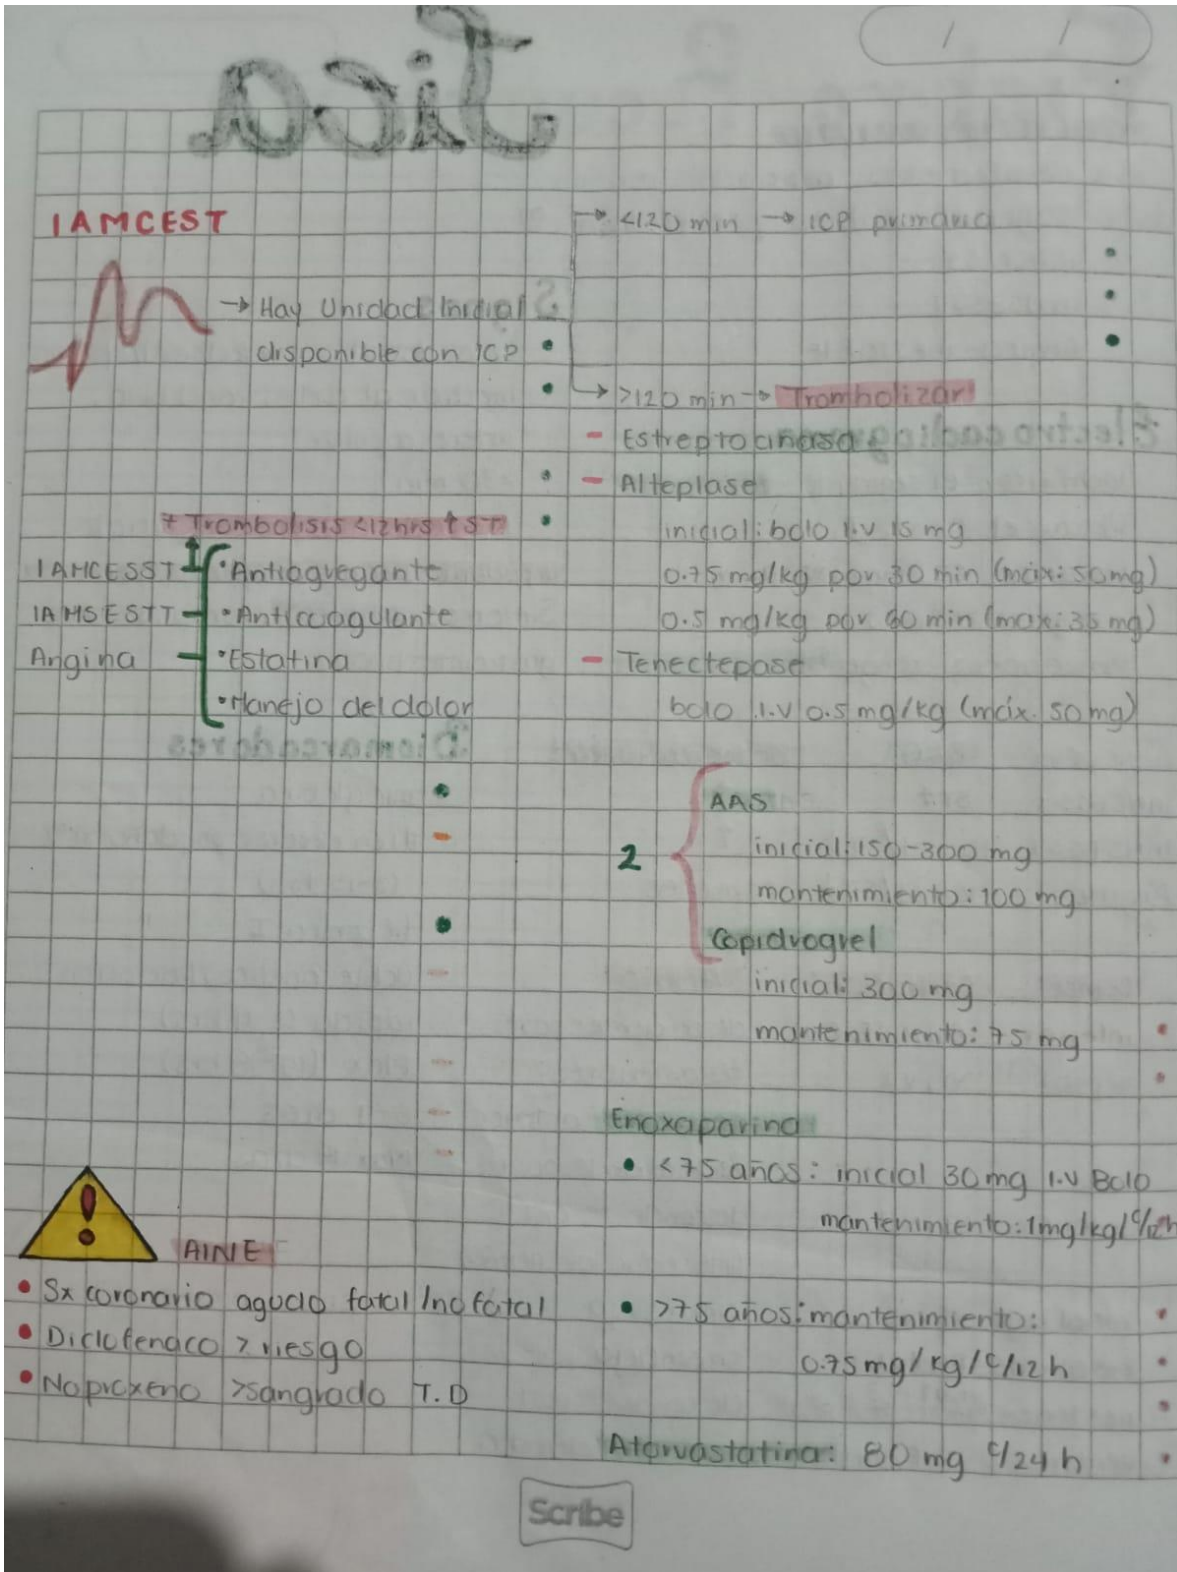 IAMCEST
→ Hay Unidad Inicial
disponible con ICP
→ <120 min → ICP primaria
→ >120 min → Trombolizar
- Estreptocinasa
- Alteplase
inicial: bolo I.V 15 mg
0.75 mg/kg por 30 min (máx: 50mg)
0.5 mg/kg por 60 min (max: 35 mg)
- Tenectepase
bolo I.V 0.5 mg/kg (máx. 50 mg)
+ Trombolisis <12hrs ↑ ST
IAMCESST
IAMSESTT
Angina
• Antiagregante
• Anticoagulante
• Estatina
• Manejo del dolor
2
AAS
inicial: 150-300 mg
mantenimiento: 100 mg
Copidrogrel
inicial: 300 mg
mantenimiento: 75 mg
Enoxaparina
• <75 años: inicial 30 mg I.V Bolo
mantenimiento: 1mg/kg/c/12h
• >75 años: mantenimiento:
0.75 mg/kg/c/12 h
Atorvastatina: 80 mg c/24 h
! AINE
• Sx coronario agudo fatal/no fatal
• Diclofenaco > riesgo
• Naproxeno >sangrado T.D
Scribe